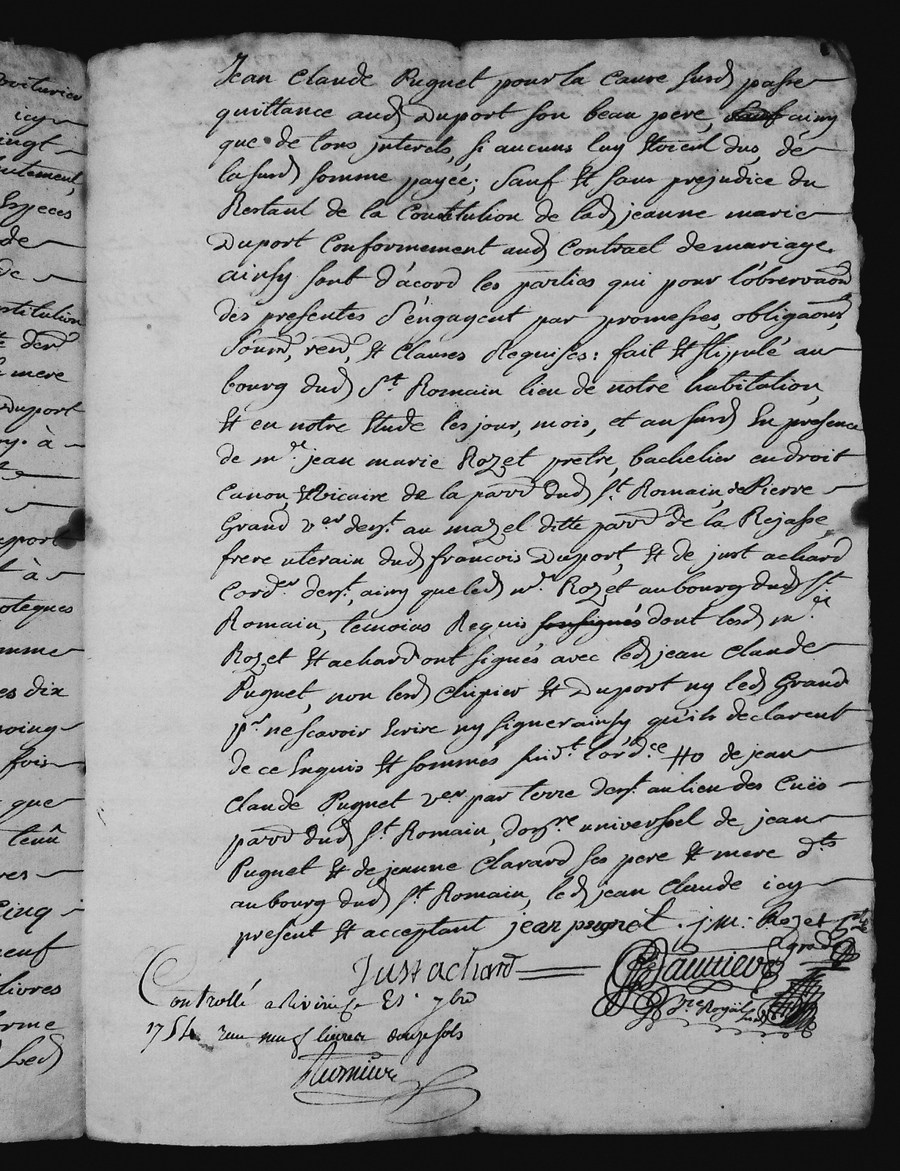 voiturier
icy
vingt
Especes
de
de
stitution
mere
Duport
à
à
oteques
omme
es dix
fois
que
tenû
res
Cinq
neuf
livres
orme
Led
Jean Claude Puguet pour la Cause susd passe
quittance aud Duport son beau pere, ainsy
que de tous jnterets, si aucuns luy Etoient dus, de
lasusd somme payée; Sauf Et sans prejudice du
Restant de la Constitution de lad jeanne marie
Duport Conformement aud Contract de mariage.
ainsy sont d'acord les parties qui pour l'observaon
des presentes s'engagent par promesses, obligaons,
Soum, ren, Et Clauses Requises: fait Et stipulé au
bourg dud St. Romain lieu de notre habitation,
Et en notre Etude les jour, mois, et an susd En presence
de mre jean marie Rozet pretre, bachelier en droit
Canon, Et vicaire de la parr dud St. Romain, de Pierre
Grand ver demt. au mazel ditte parr de la Rejasse
frere uterain dud francois Duport, Et de just achard
Corder demt., ainsy que led mr. Rozet au bourg dud St
Romain, temoins Requis soussignés dont lesd mr.
Rozet Et achard ont signés avec led jean Claude
Puguet, non lesd Chipier Et Duport ny led Grand
pr ne scavoir Ecrire ny signer ainsy qu'ils declarent
de ce Enquis Et sommes suivt. l'ordce. #o de jean
Claude Puguet ver par terre demt. au lieu des Cuës
parr dud St. Romain, donre universel de jean
Puguet Et de jeanne Clavard ses pere Et mere dts
au bourg dud St. Romain, led jean Claude icy
present Et acceptant jean pugnet. j.m. Rozet
Just achard
Controllé a Rivirie le 21 7bre
1754 Reçu neuf livres douze sols